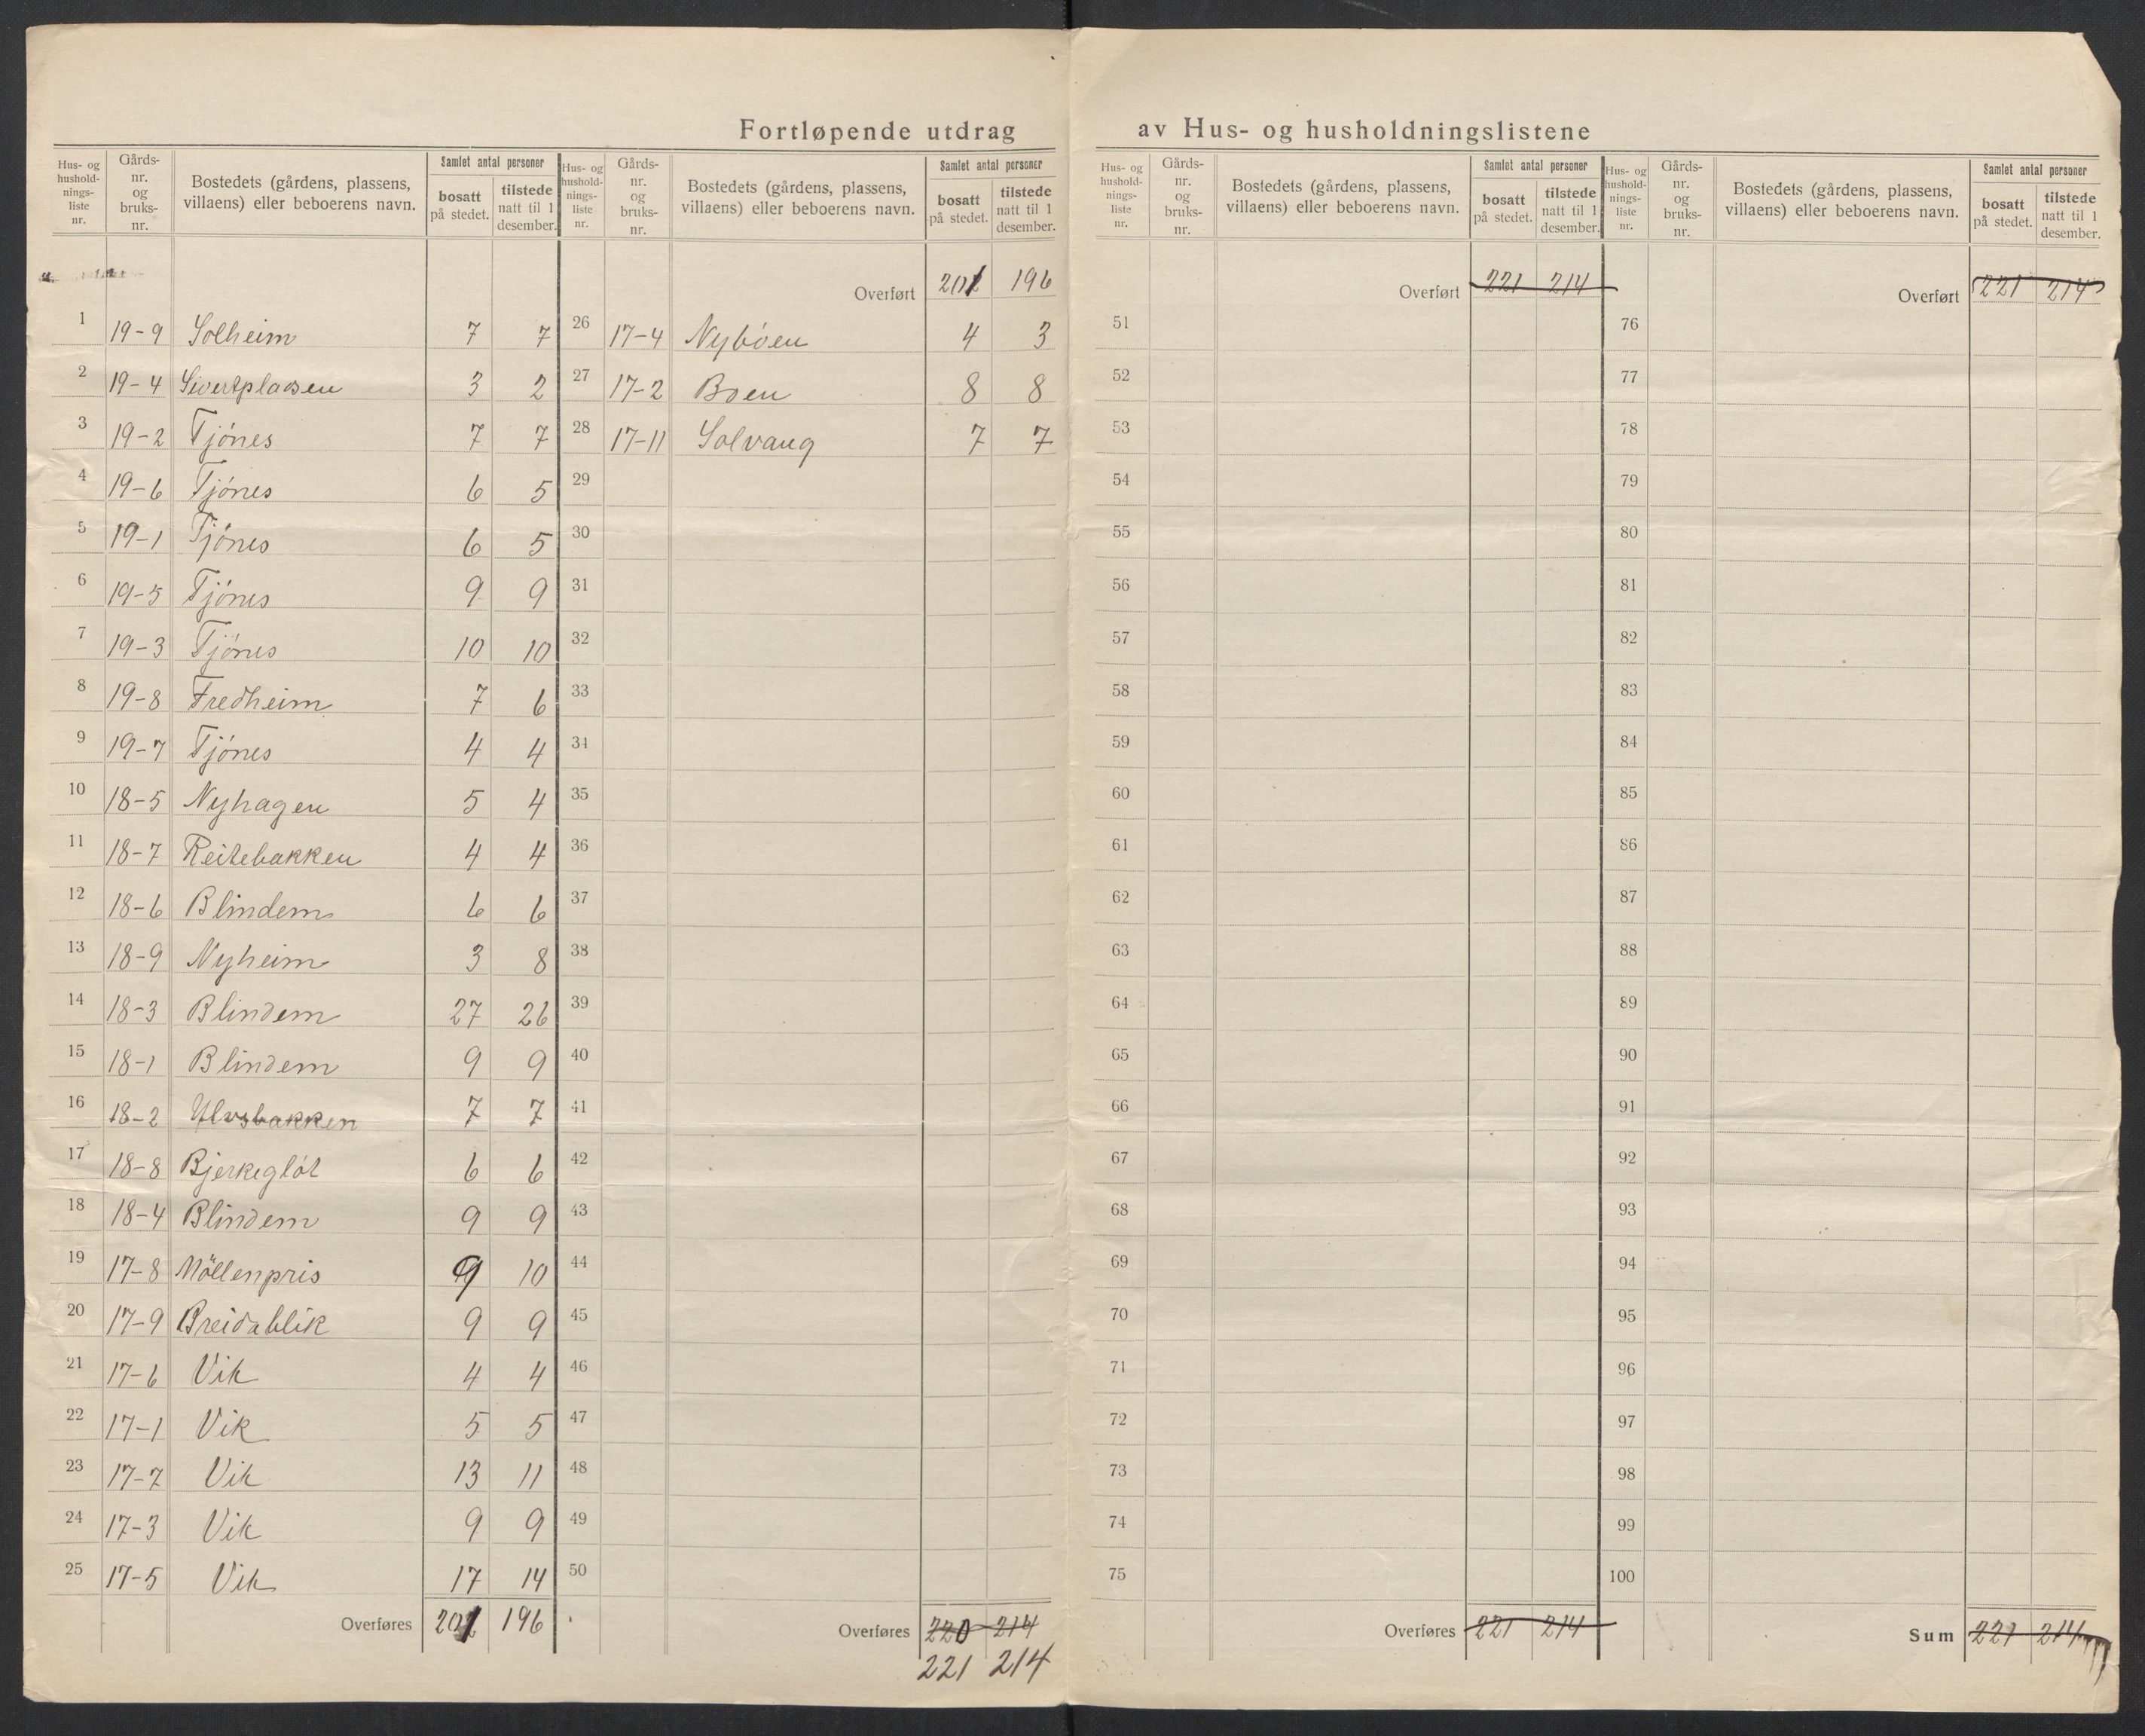 Fortløpende utdrag av Hus- og husholdningslistene
Hus- og hushold-nings-liste nr. Gårds-nr. og bruks-nr. Bostedets (gårdens, plassens, villaens) eller beboerens navn. Samlet antal personer bosatt på stedet. tilstede natt til 1 desember.
1 19-9 Solheim 7 7
2 19-4 Sivertpladsen 3 2
3 19-2 Tjönes 7 7
4 19-6 Tjönes 6 5
5 19-1 Tjönes 6 5
6 19-5 Tjönes 9 9
7 19-3 Tjönes 10 10
8 19-8 Fredheim 7 6
9 19-7 Tjönes 4 4
10 18-5 Nyhagen 5 4
11 18-7 Reitebakken 4 4
12 18-6 Blindem 6 6
13 18-9 Nyheim 3 8
14 18-3 Blindem 27 26
15 18-1 Blindem 9 9
16 18-2 Ulvsbakken 7 7
17 18-8 Bjerkeglöt 6 6
18 18-4 Blindem 9 9
19 17-8 Möllenpris 9 10
20 17-9 Breidablik 9 9
21 17-6 Vik 4 4
22 17-1 Vik 5 5
23 17-7 Vik 13 11
24 17-3 Vik 9 9
25 17-5 Vik 17 14
Overføres 201 196
Hus- og hushold-nings-liste nr. Gårds-nr. og bruks-nr. Bostedets (gårdens, plassens, villaens) eller beboerens navn. Samlet antal personer bosatt på stedet. tilstede natt til 1 desember.
Overført 201 196
26 17-4 Nyböen 4 3
27 17-2 Boen 8 8
28 17-11 Solvang 7 7
29
30
31
32
33
34
35
36
37
38
39
40
41
42
43
44
45
46
47
48
49
50
Overføres 220 214
221 214
Hus- og hushold-nings-liste nr. Gårds-nr. og bruks-nr. Bostedets (gårdens, plassens, villaens) eller beboerens navn. Samlet antal personer bosatt på stedet. tilstede natt til 1 desember.
Overført 221 214
51
52
53
54
55
56
57
58
59
60
61
62
63
64
65
66
67
68
69
70
71
72
73
74
75
Overføres 221 214
Hus- og hushold-nings-liste nr. Gårds-nr. og bruks-nr. Bostedets (gårdens, plassens, villaens) eller beboerens navn. Samlet antal personer bosatt på stedet. tilstede natt til 1 desember.
Overført 221 214
76
77
78
79
80
81
82
83
84
85
86
87
88
89
90
91
92
93
94
95
96
97
98
99
100
Sum 221 214